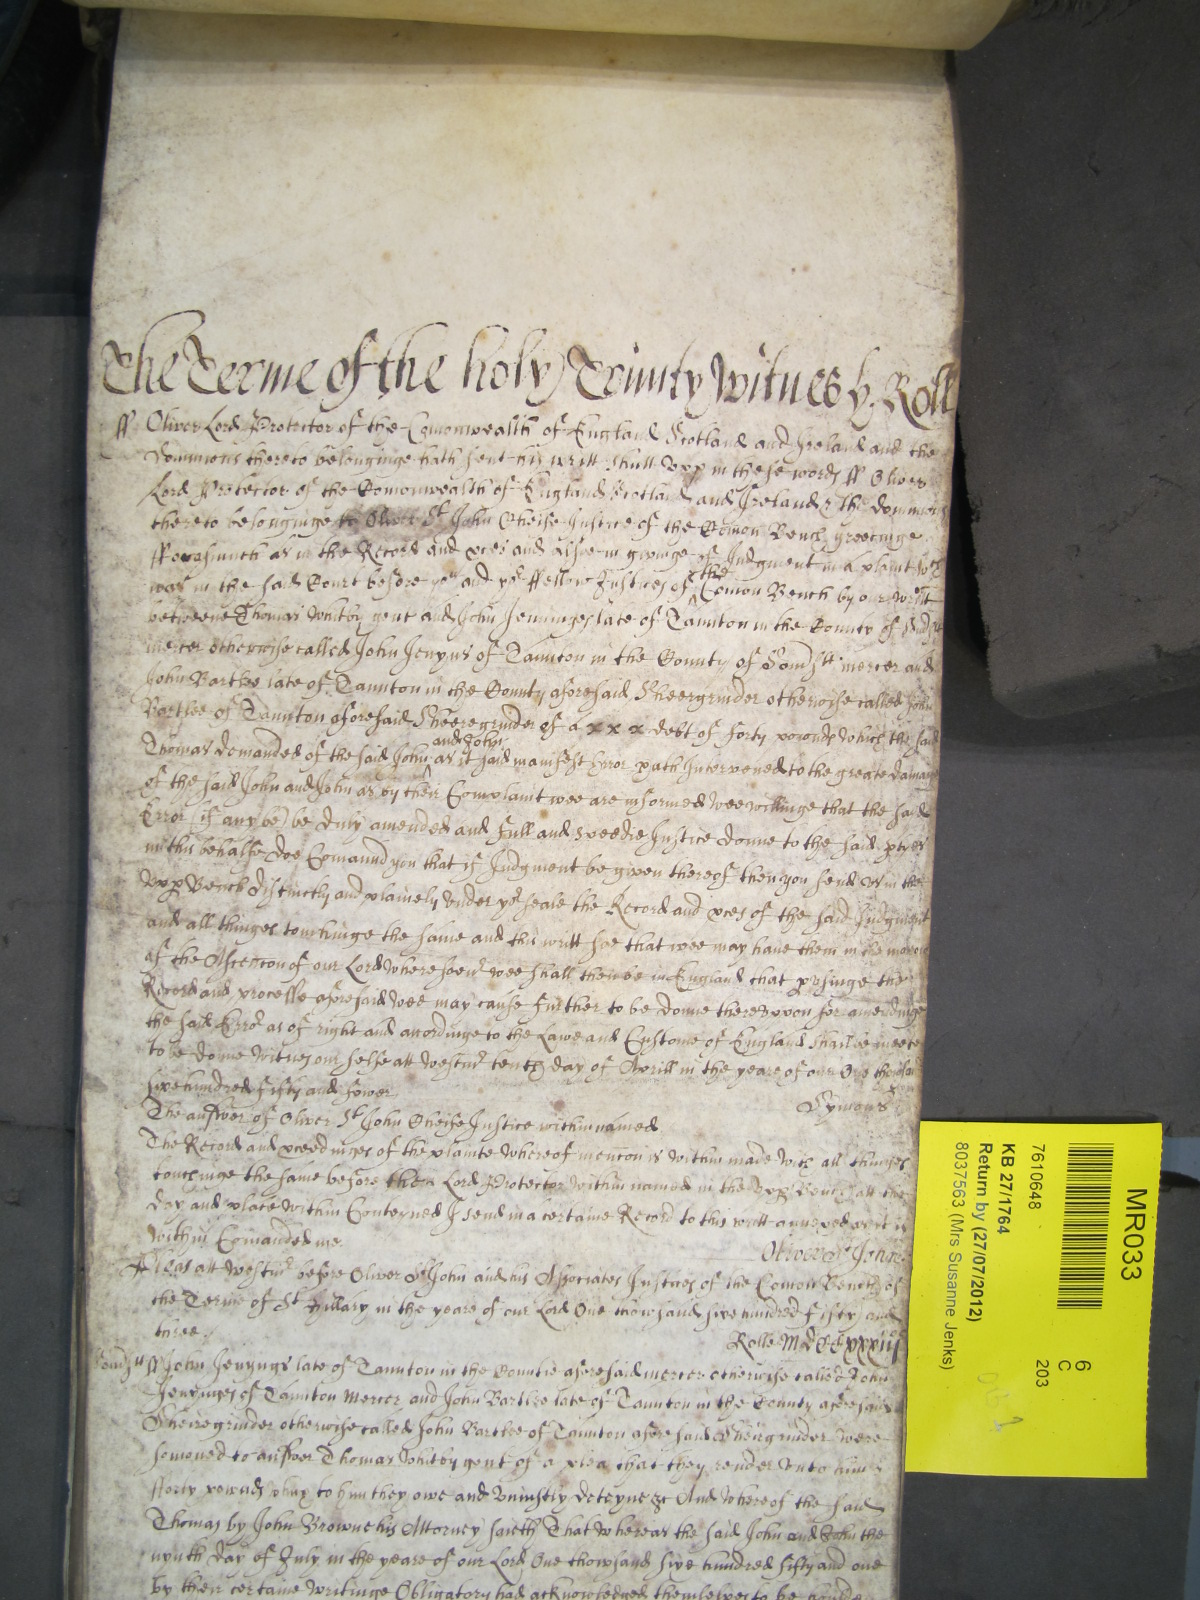 The Terme of the holy Trinity Witnes H. Roll
ff Oliver Lord Protector of the Comonwealth of England Scotland and Ireland and the
dominions thereto belonginge hath sent his writt shutt upp in these words ff Oliver
Lord Protector of the Comonwealth of England Scotland and Ireland & the dominions
thereto belonginge to Oliver St John Cheife Justice of the Comon Bench greetinge
fforasmuch as in the Record and pces and alsoe in givinge of Judgment in a plaint wch
was in the said Court before you and yor ffellow Justices of the Comon Bench by our writt
betweene Thomas Whitby gent and John Jenninges late of Taunton in the County of
mercer otherwise called John Jenyns of Taunton in the County of Somsett mercer and
John Bartlee late of Taunton in the County aforesaid Sheergrinder otherwise called John
Bartlee of Taunton aforesaid Sheeregrinder of a x x x debt of forty pounds which the said
Thomas demanded of the said John and John as it said manifest Error hath Intervened to the greate damage
of the said John and John as by their Complaint wee are informed wee willinge that the said
Error (if any be) be duly amended and full and speedie Justice donne to the said ptyes
in this behalfe doe Comaund you that if Judgment be given thereof then you send us in the
upp Bench distinctly and plainely under yor seale the Record and pces of the said Judgment
and all thinges touchinge the same and this writt soe that wee may have them in the morow
of the Ascencon of our Lord wheresoevr wee shall then be in England that pusinge the
Record and processe aforesaid wee may cause further to be donne thereuppon for amendinge
the said Error as of right and accordinge to the Lawe and Custome of England shalbe meete
to be donne Witnes our selfe att Westmr tenth day of Aprill in the yeare of our One thowsand
sixe hundred fifty and fower
Symons
The answer of Oliver St John Cheife Justice within named
The Record and pceedinges of the plainte whereof mencon is within made with all thinges
touchinge the same before the Lord Protector within named in the upp Bench att the
day and place within Conteyned I send in a certaine Record to this writt annexed as it is
within Comanded me.
Oliver St John
Pleas att Westmr before Oliver St John and his Associates Justices of the Comon Bench of
the Terme of St Hillary in the yeare of our Lord One thowsand sixe hundred fifty and
three.
Rolle
ff John Jenyngs late of Taunton in the Countie aforesaid mercer otherwise called John
Jenynges of Taunton Mercer and John Bartlee late of Taunton in the County aforesaid
Sheiregrinder otherwise called John Bartlee of Taunton aforesaid Sheirgrinder were
somoned to answer Thomas Whitby gent of a plea that they render unto him
fforty pownds which to him they owe and uniustly deteyne &c And whereof the said
Thomas by John Browne his Attorney saieth That whereas the said John and John the
nynth day of July in the yeare of our Lord One thowsand sixe hundred fifty and one
by their certaine writinge Obligatory had acknowledged themselves to be
MR033
6
C
203
7610648
KB 27/1764
Return by (27/07/2012)
8037563 (Mrs Susanne Jenks)